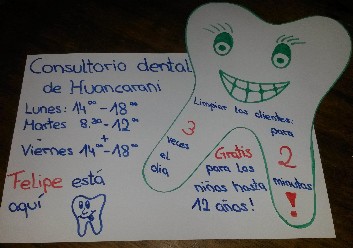 Consultorio dental
de Huancarani
Lunes: 14⁰⁰-18⁰⁰
Martes 8.30-12⁰⁰
- +
Viernes 14⁰⁰-18⁰⁰
Felipe está
aquí
Limpiar los dientes:
3
veces
el
día
para
2
minutos
!
Gratis
para los
niños hasta
12 años!